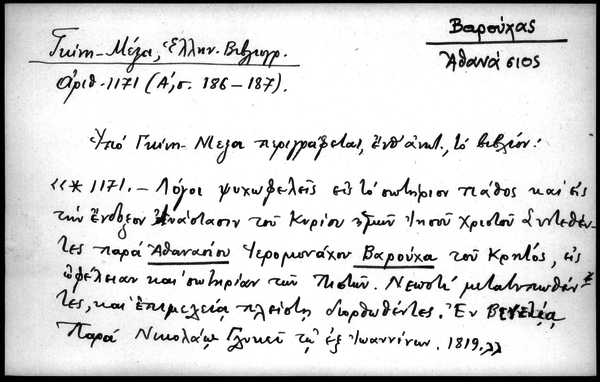 Βαρούχας
Ἀθανάσιος
Γκίνη-Μέξα, Ἑλλην. Βιβλιογρ.
ἀριθ. 1171 (Α΄, σ. 186-187).
Ὑπό Γκίνη-Μεξα περιγράφεται, ἔνθ' ἀνωτ., τό βιβλίον:
«* 1171.- Λόγοι ψυχωφελεῖς εἰς τό σωτήριον πάθος καί εἰς
τήν ἔνδοξον Ἀνάστασιν τοῦ Κυρίου ἡμῶν Ἰησοῦ Χριστοῦ Συντεθέν-
τες παρά Ἀθανασίου Ἱερομονάχου Βαρούχα τοῦ Κρητός, εἰς
ὠφέλειαν καί σωτηρίαν τῶν Πιστῶν. Νεωστί μετατυπωθέν-
τες, καί ἐπιμελείᾳ πλείστῃ διορθωθέντες. Ἐν Βενετίᾳ
Παρά Νικολάῳ Γλυκεῖ τῷ ἐξ Ἰωαννίνων. 1819.»